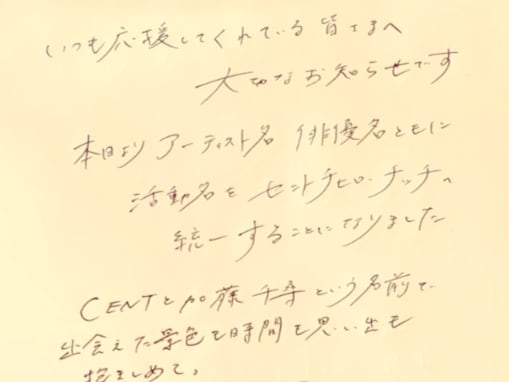 いつも応援してくれている皆さまへ
大切なお知らせです
本日より アーティスト名 俳優名ともに
活動名を セントチヒロ・チッチへ
統一することになりました
CENTと加藤千尋という名前で
出会えた景色も時間も思い出も
抱きしめて。